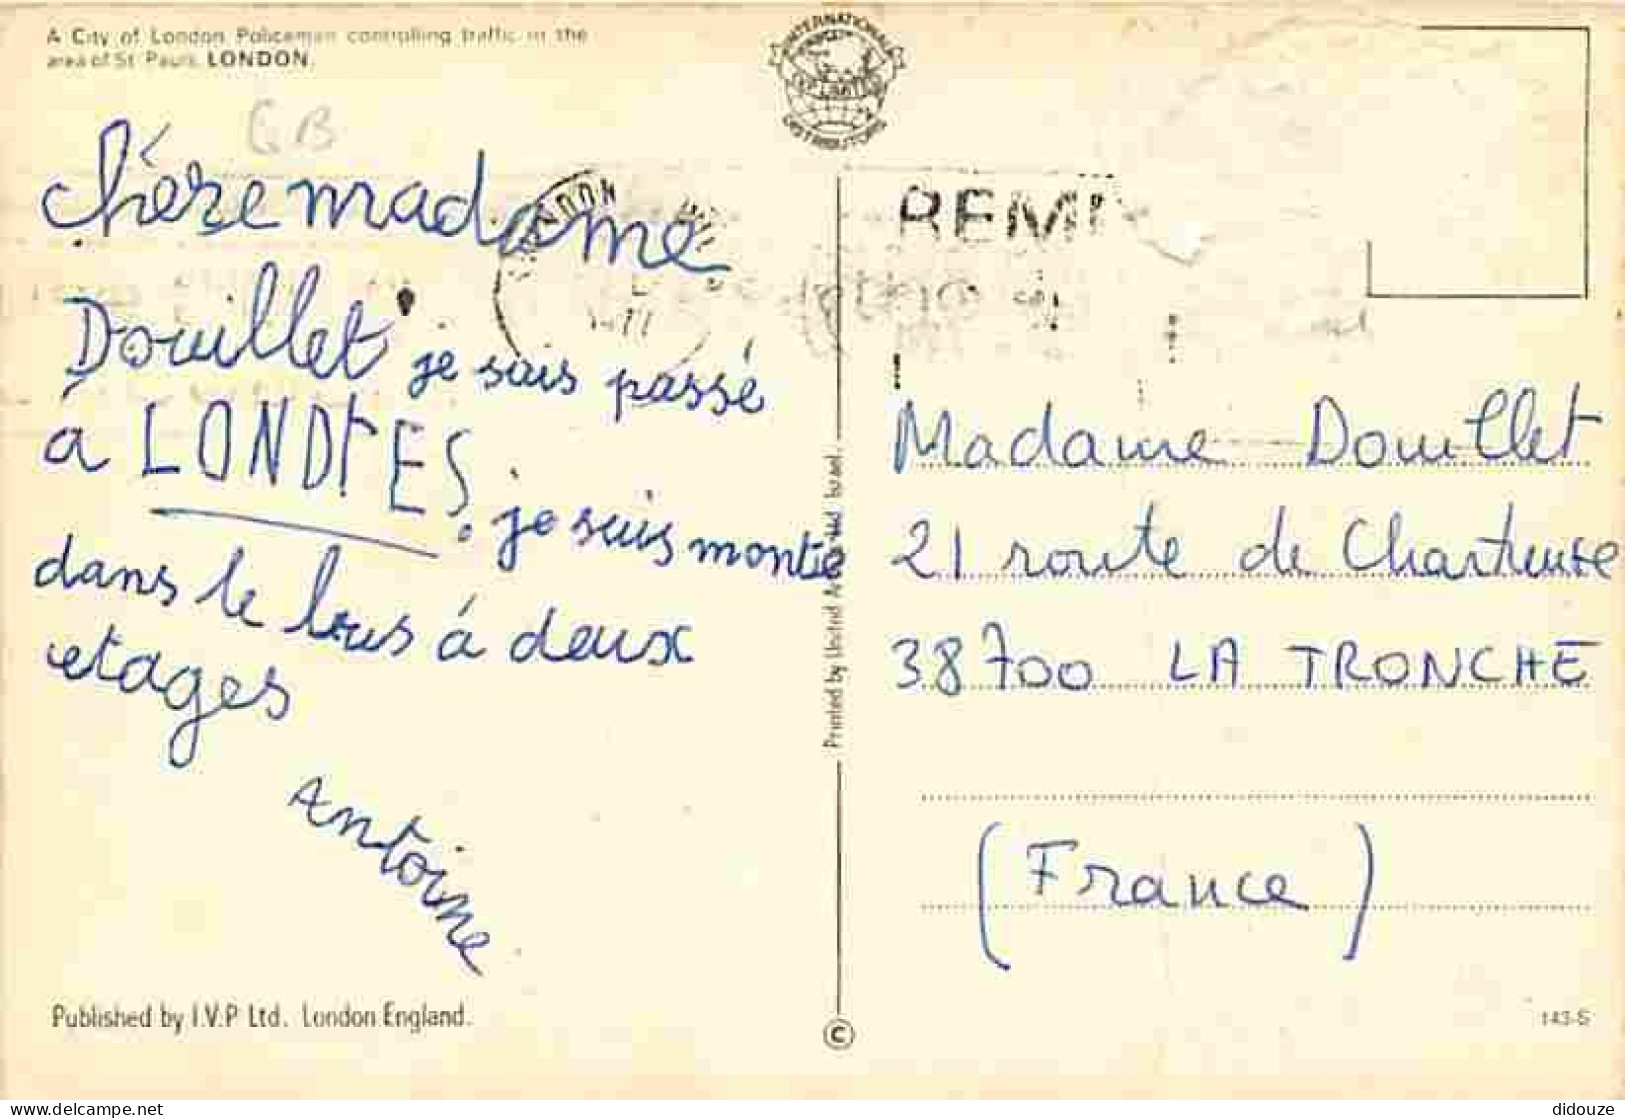 A City of London Policeman controlling traffic in the
area of St Pauls, LONDON.
INTERNATIONAL
DISTRIBUTORS
GB
LONDON
REMI
chère madame
Douillet je sais passé
à LONDRES. je suis monté
dans le bus à deux
etages
Antoine
Madame Douillet
21 route de Chartreuse
38700 LA TRONCHE
(France)
Printed by United Israel.
Published by I.V.P Ltd. London England.
©
143-S
delcampe.net
didouze